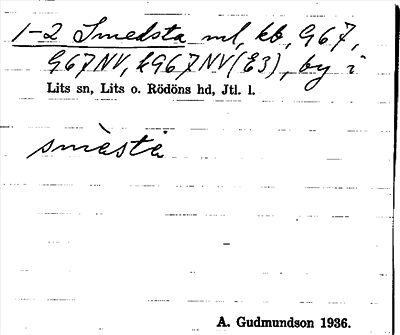 1-2 Smedsta ml, kb, G67,
G67NV, kG67NV(E3), by i
Lits sn, Lits o. Rödöns hd, Jtl. l.
smὲsta
A. Gudmundson 1936.